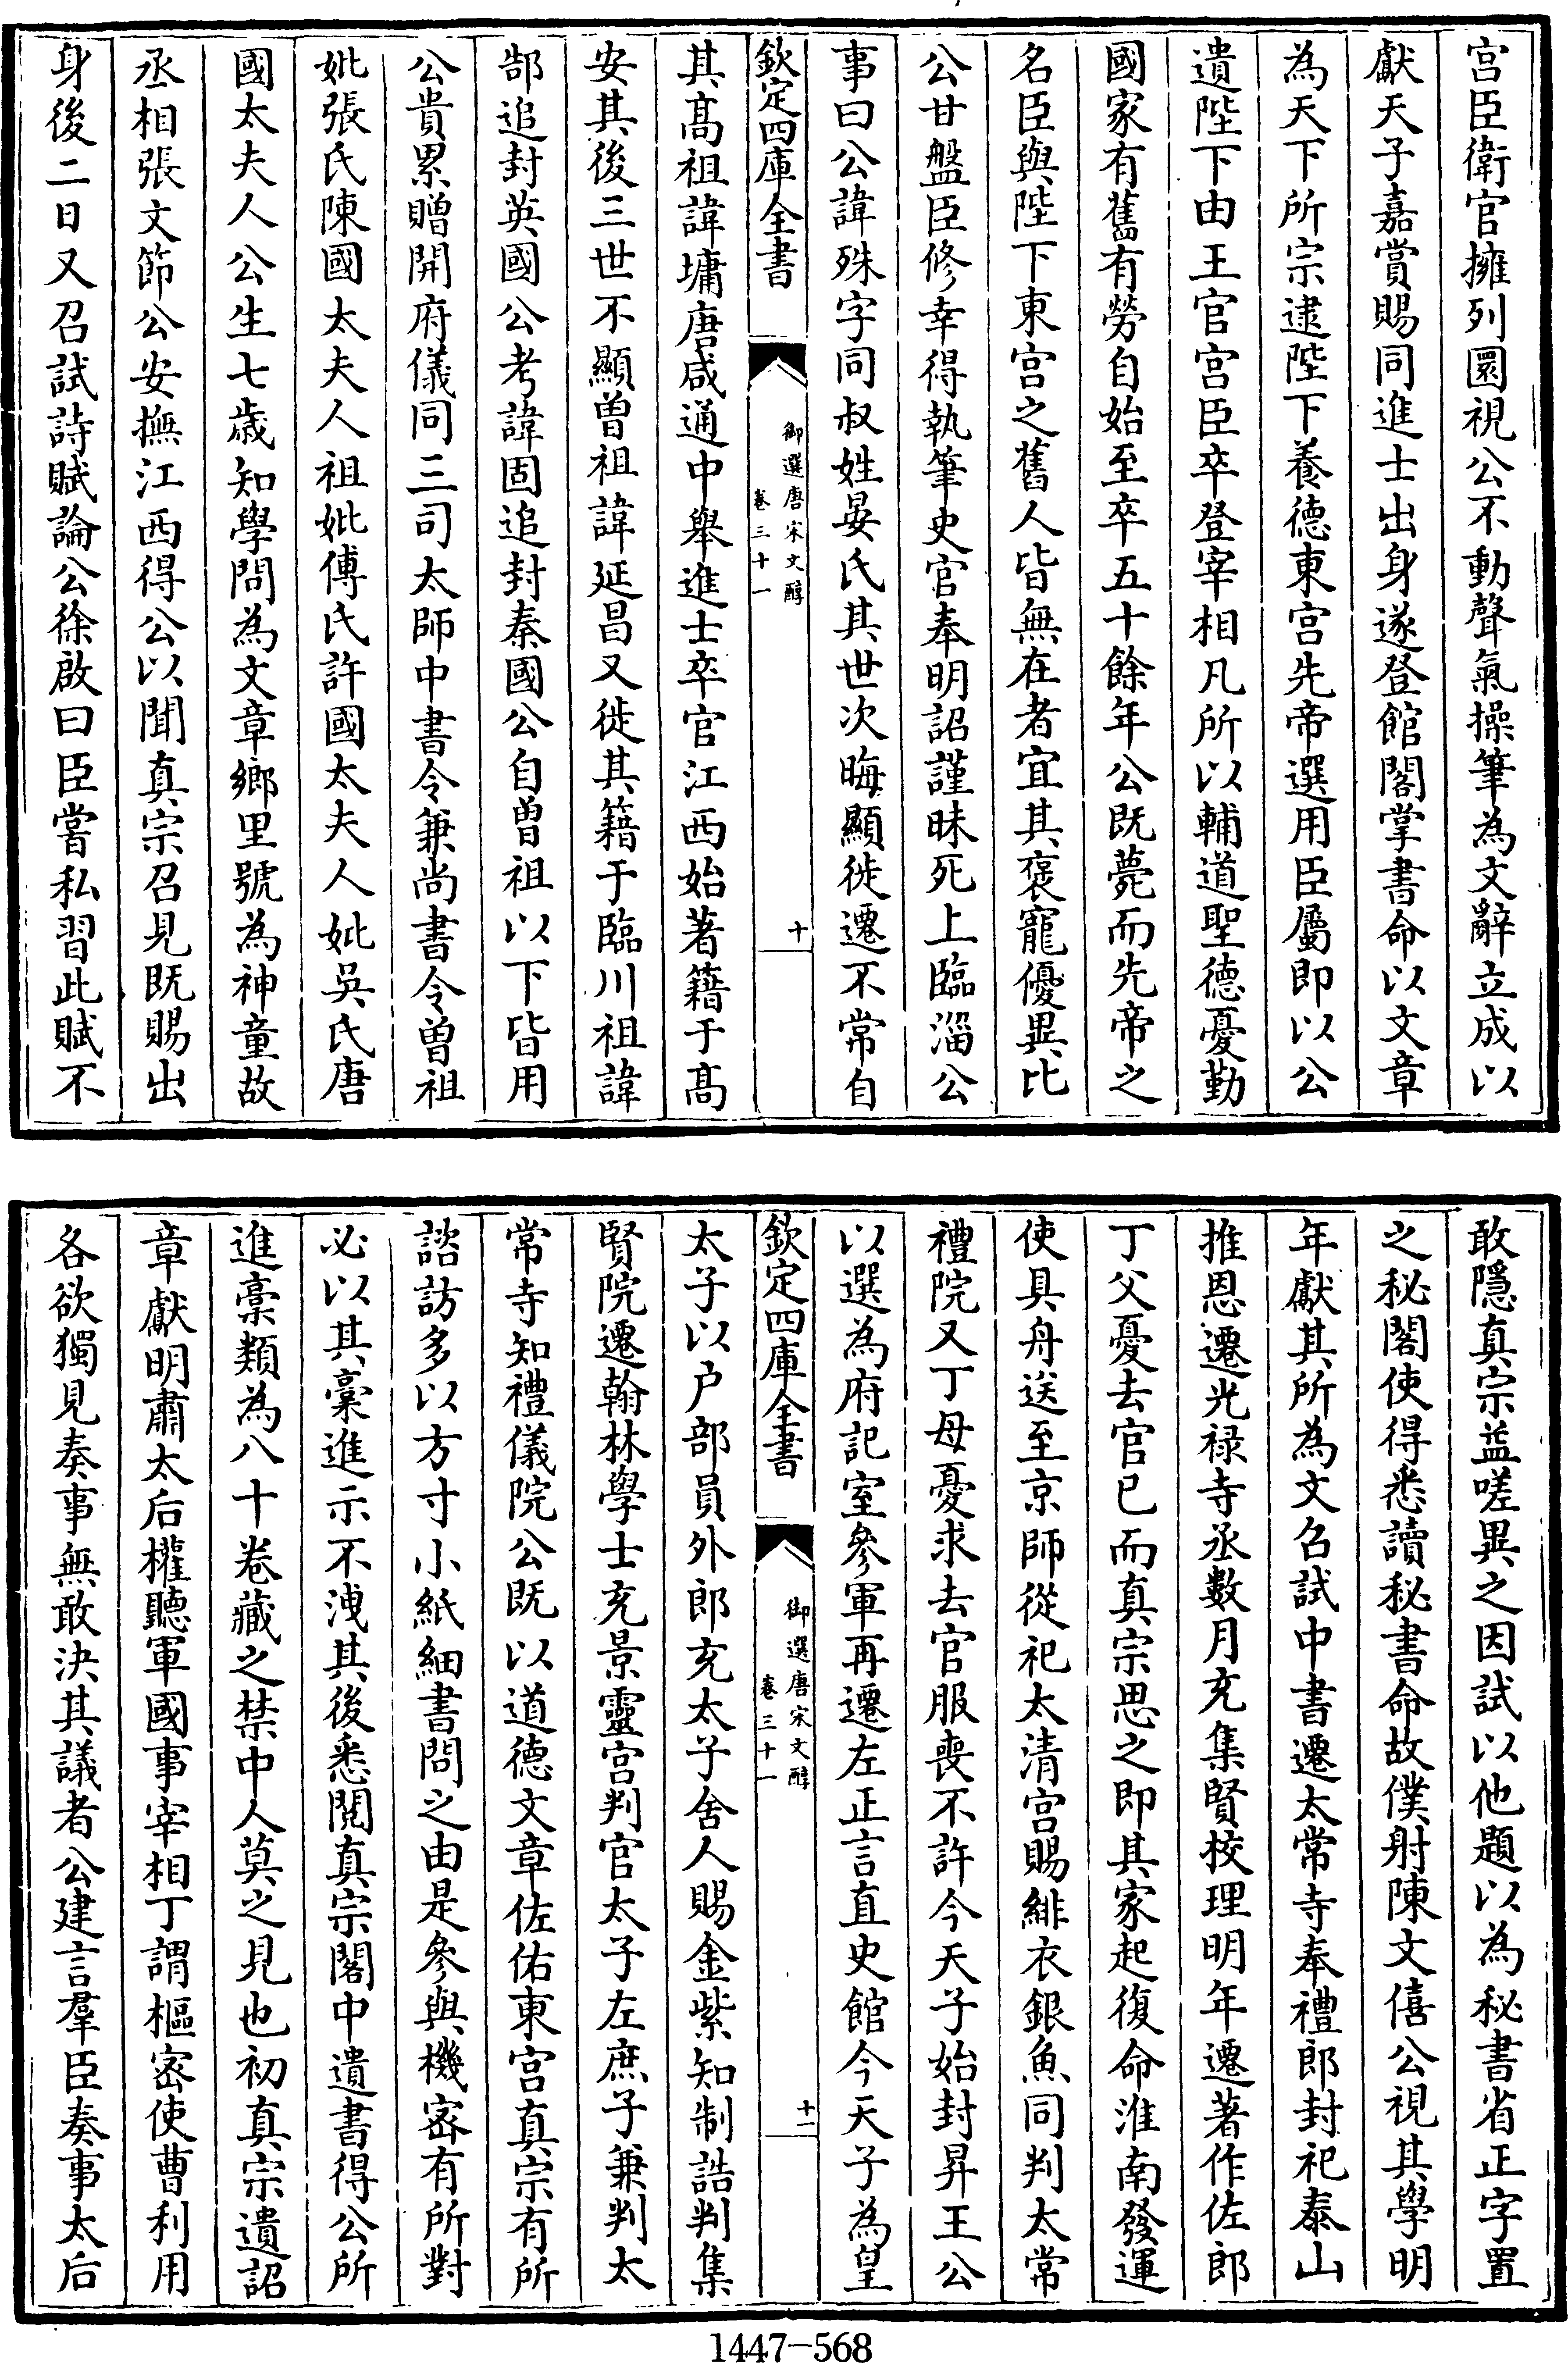 宫臣衛官擁列圜視公不動聲氣操筆為文辭立成以
獻天子嘉賞賜同進士出身遂登館閣掌書命以文章
為天下所宗逮陛下養德東宫先帝選用臣屬即以公
遺陛下由王官宫臣卒登宰相凡所以輔道聖德憂勤
國家有舊有勞自始至卒五十餘年公既薨而先帝之
名臣與陛下東宫之舊人皆無在者宜其褒寵優異比
公甘盤臣修幸得執筆史官奉明詔謹昧死上臨淄公
事曰公諱殊字同叔姓晏氏其世次晦顯徙遷不常自
欽定四庫全書
御選唐宋文醇
卷三十一
十
其髙祖諱墉唐咸通中舉進士卒官江西始著籍于髙
安其後三世不顯曽祖諱延昌又徙其籍于臨川祖諱
郜追封英國公考諱固追封秦國公自曽祖以下皆用
公貴累贈開府儀同三司太師中書令兼尚書令曽祖
妣張氏陳國太夫人祖妣傅氏許國太夫人妣吳氏唐
國太夫人公生七歳知學問為文章鄉里號為神童故
丞相張文節公安撫江西得公以聞真宗召見既賜出
身後二日又召試詩賦論公徐啟曰臣嘗私習此賦不
敢隱真宗益嗟異之因試以他題以為秘書省正字置
之秘閣使得悉讀秘書命故僕射陳文僖公視其學明
年獻其所為文召試中書遷太常寺奉禮郎封祀泰山
推恩遷光禄寺丞數月充集賢校理明年遷著作佐郎
丁父憂去官已而真宗思之即其家起復命淮南發運
使具舟送至京師從祀太清宫賜緋衣銀魚同判太常
禮院又丁母憂求去官服喪不許今天子始封昇王公
以選為府記室參軍再遷左正言直史館今天子為皇
欽定四庫全書
御選唐宋文醇
卷三十一
十一
太子以户部員外郎充太子舍人賜金紫知制誥判集
賢院遷翰林學士充景靈宫判官太子左庶子兼判太
常寺知禮儀院公既以道德文章佐佑東宫真宗有所
諮訪多以方寸小紙細書問之由是參與機宻有所對
必以其藁進示不洩其後悉閲真宗閣中遺書得公所
進藁類為八十卷藏之禁中人莫之見也初真宗遺詔
章獻明肅太后權聽軍國事宰相丁謂樞宻使曹利用
各欲獨見奏事無敢決其議者公建言羣臣奏事太后
1447-568